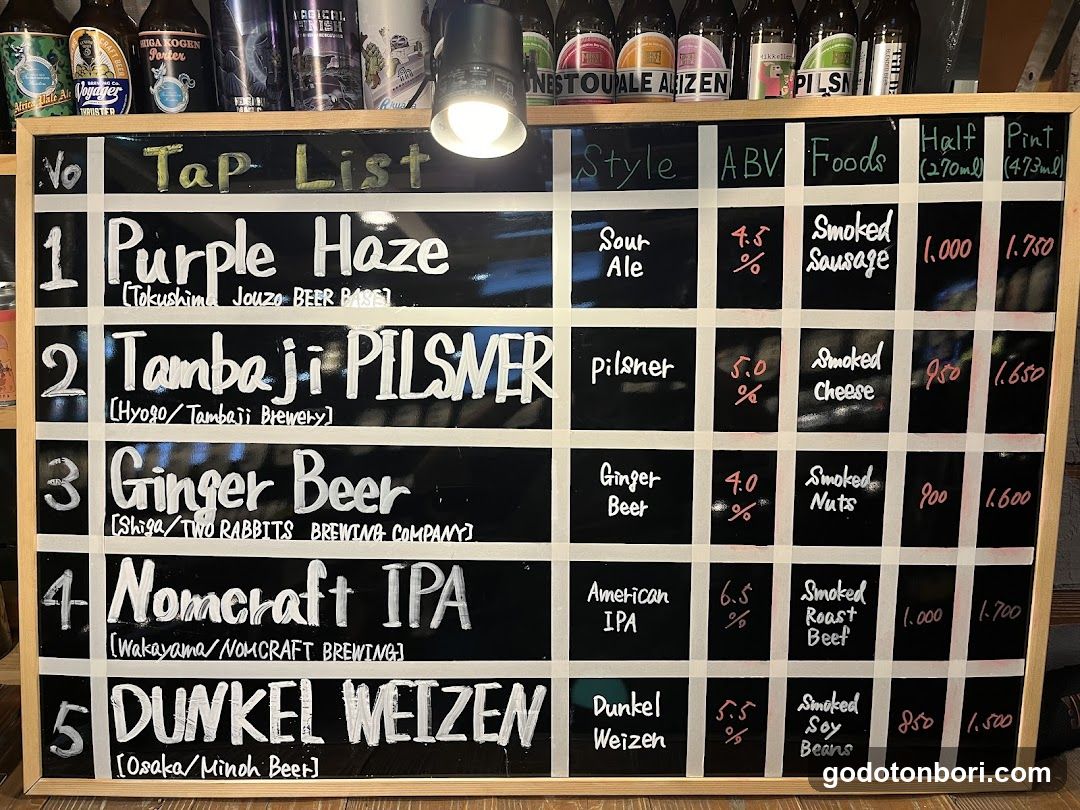 Africa Pale Ale
Voyager
SHIGA KOGEN
Porter
STOU
PALE A
EIZEN
PILSN
No Tap List Style ABV Foods Half (270ml) Pint (473ml)
1 Purple Haze
[Tokushima Jouzo BEER BASE]
Sour
Ale
4.5
%
Smoked
Sausage
1.000
1.750
2 Tambaji PILSNER
[Hyogo/Tambaji Brewery]
pilsner
5.0
%
Smoked
Cheese
950
1.650
3 Ginger Beer
[Shiga/TWO RABBITS BREWING COMPANY]
Ginger
Beer
4.0
%
Smoked
Nuts
900
1.600
4 Nomcraft IPA
[Wakayama/NOMCRAFT BREWING]
American
IPA
6.5
%
Smoked
Roast
Beef
1.000
1.700
5 DUNKEL WEIZEN
[Osaka/Minoh Beer]
Dunkel
Weizen
5.5
%
Smoked
Soy
Beans
850
1.500
godotonbori.com